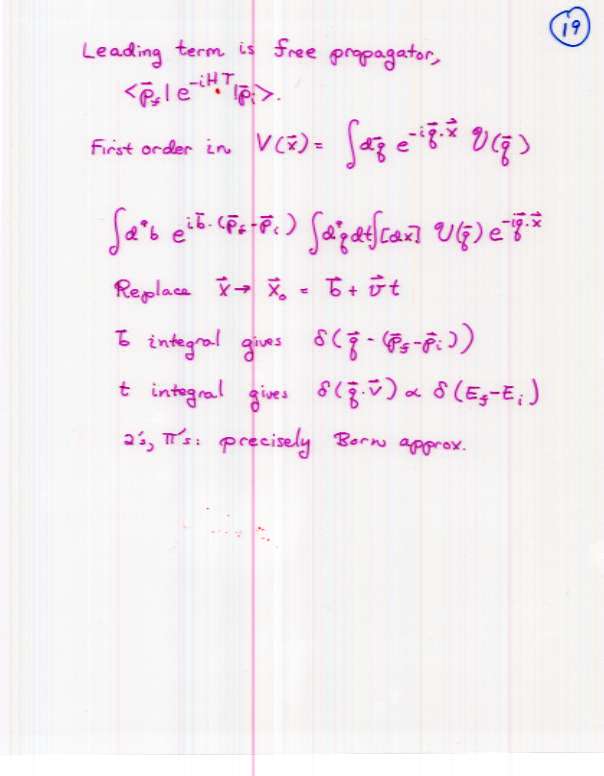 19
Leading term is free propagator,
<p⃗_f|e^{-iHT}|p⃗_i>.
First order in V(x⃗) = ∫dq⃗ e^{-iq⃗·x⃗} 𝒱(q⃗)
∫d^nb e^{ib⃗·(p⃗_f-p⃗_i)} ∫d^nq dt∫[dx] 𝒱(q⃗) e^{-iq⃗·x⃗}
Replace x⃗→ x⃗_0 = b⃗ + v⃗t
b⃗ integral gives δ(q⃗ - (p⃗_f-p⃗_i))
t integral gives δ(q⃗·v⃗) ∝ δ(E_f-E_i)
2's, π's: precisely Born approx.